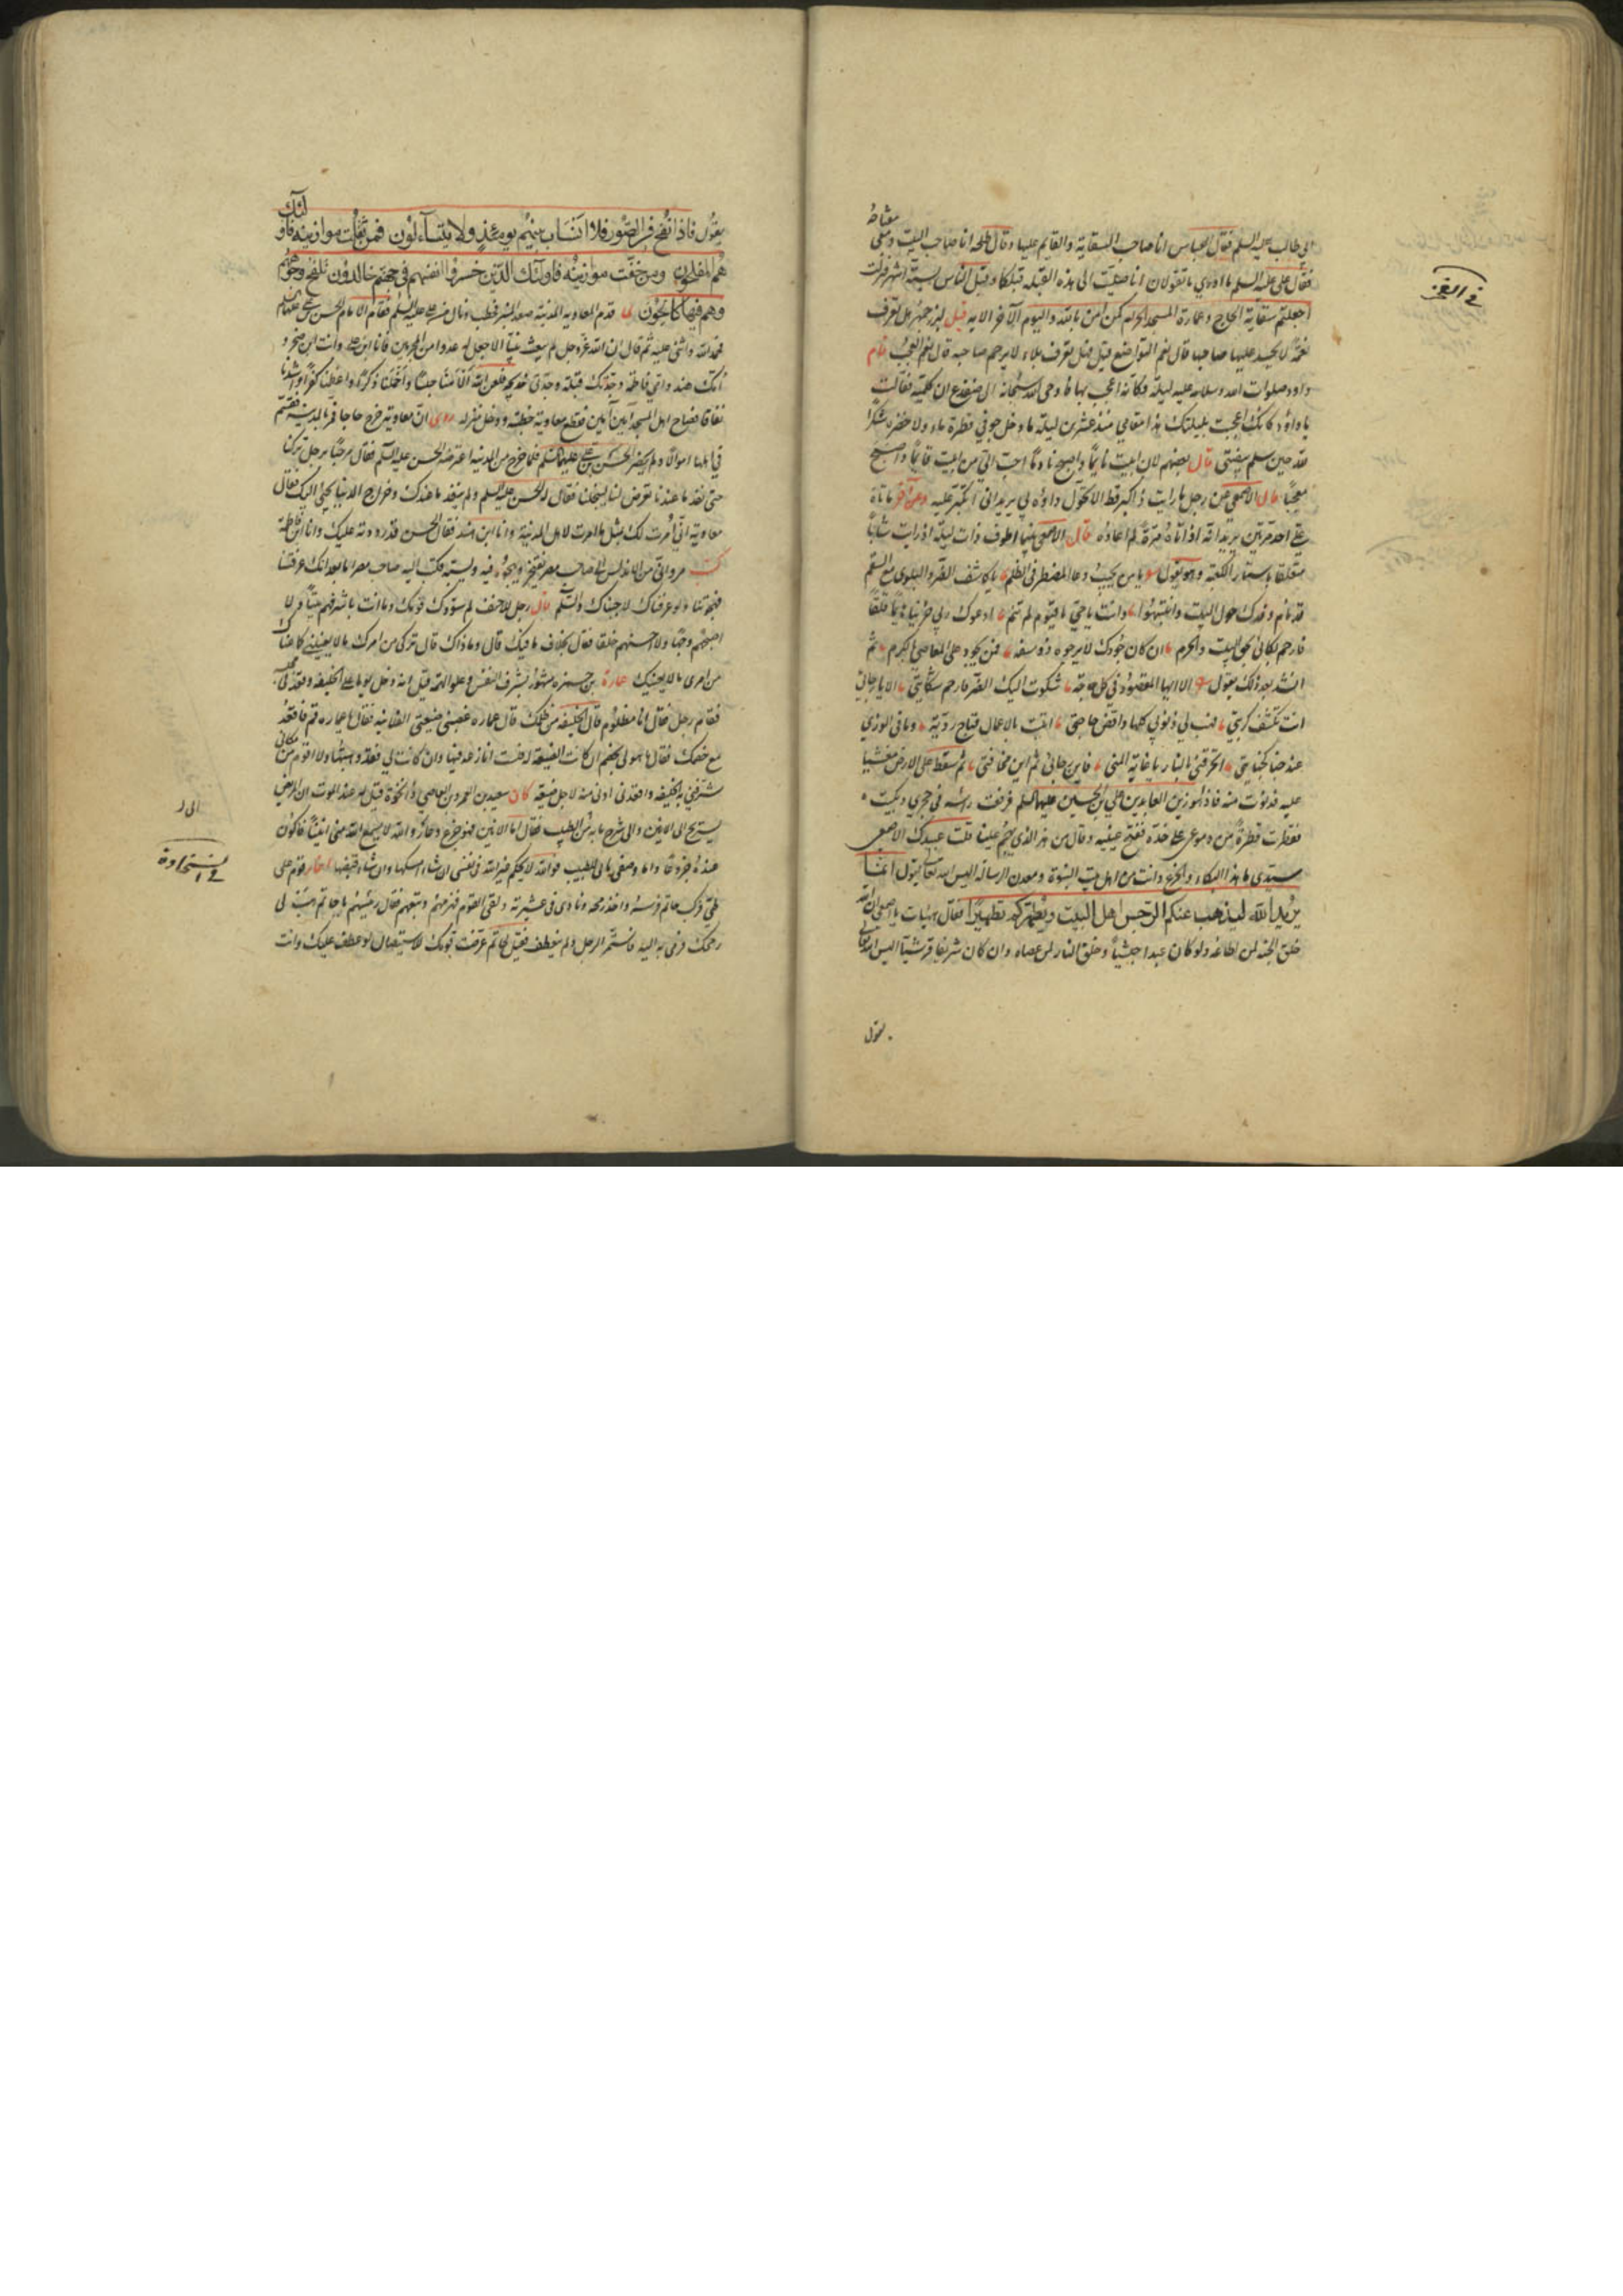 ابى طالب عليه السلم فقال العباس انا صاحب السقاية والقايم عليها وقال طلحه انا صاحب البيت ومعى مفتاحه
فقال على عليه السلم ما ادرى ما تقولان انا صليت الى هذه القبله قبلكما وقبل الناس بستة اشهر فنزلت
اجعلتم سقاية الحاج وعمارة المسجد الحرام كمن امن بالله واليوم الآخر الايه قيل لبزرجمهر هل تعرف
نعمة لا يحسد عليها صاحبها قال نعم التواضع قيل فهل تعرف بلاء لا يرحم صاحبه قال نعم العجب قام
داود صلوات الله وسلامه عليه ليلة فكانه اعجب بها فاوحى الله سبحانه الى ضفدع ان كلميه فقالت
يا داود كانك اعجبت بليلتك هذا مقامي منذ عشرين ليلة ما دخل جوفي قطرة ماء ولا خضره شكرا
لله حين سلم بيضتى قال بعضهم لان ابيت نايما واصبح نادما احب الي من ابيت قايما واصبح
معجبا قال الاصمعي عن رجل ما رايت ذا كبر قط الا تحول داؤه لي يريد اني اتكبر عليه وعن آخر ما تاه
علي احد مرتين يريد انه اذا تاه مرة لم اعاوده قال الاصمعى بينما اطوف ذات ليلة اذ رايت شابا
متعلقا باستار الكعبة وهو يقول يا من يجيب دعا المضطر فى الظلم يا كاشف الضر والبلوى مع السقم
قد نام وفدك حول البيت وانتبهوا وانت يا حي يا قيوم لم تنم ادعوك ربي حزينا هايما قلقا
فارحم بكائى بحق البيت والحرم ان كان جودك لا يرجوه ذو سفه فمن يجود على العاصي بالكرم ثم
انشد بعد ذلك يقول الا ايها المقصود في كل حاجة شكوت اليك الضر فارحم شكايتي الا يا رجائى
انت تكشف كربتي فهب لي ذنوبي كلها واقض حاجتي اتيت باعمال قباح رديه وما فى الورى
عبد جنا كجنايتي اتحرقني بالنار يا غاية المنى فاين رجائى ثم اين مخافتى ثم سقط على الارض مغشيا
عليه فدنوت منه فاذا هو زين العابدين علي بن الحسين عليهما السلم فرفعت راسه في حجري وبكيت
فقطرت قطرة من دموعى على خده ففتح عينيه وقال من هذا الذى يهجم علينا قلت عبيدك الاصمعى
سيدى ما هذا البكاء والجزع وانت من اهل بيت النبوة ومعدن الرسالة اليس الله تعالى يقول انما
يريد الله ليذهب عنكم الرجس اهل البيت ويطهركم تطهيرا فقال هيهات يا اصمعى ان الله
خلق الجنة لمن اطاعه ولو كان عبدا حبشيا وخلق النار لمن عصاه وان كان شريفا قرشيا اليس الله تعالى
يقول
فى الفخر
يقول فاذا نفخ فى الصور فلا انساب بينهم يومئذ ولا يتساءلون فمن ثقلت موازينه فاولئك
هم المفلحون ومن خفت موازينه فاولئك الذين خسروا انفسهم فى جهنم خالدون تلفح وجوههم
وهم فيها كالحون لما قدم المعاويه المدينة صعد المنبر فخطب ونال من علي عليه السلم فقام الامام الحسن بن علي عليهما
فحمد الله واثنى عليه ثم قال ان الله عز وجل لم يبعث نبيا الا جعل له عدوا من المجرمين فانا ابن علي وانت ابن صخر و
امك هند وامي فاطمه وجدتك قتيلة وجدتى خديجه فلعن الله الامنا حسبا واخملنا ذكرا واعظمنا كفرا واشدنا
نفاقا فصاح اهل المسجد آمين آمين فقطع معاوية خطبته ودخل منزله روى ان معاوية خرج حاجا فمر بالمدينة فقسم
في اهلها اموالا ولم يحضر الحسن بن علي عليهما السلم فلما خرج من المدينه اعترضه الحسن عليه السلم فقال مرحبا برجل تركنا
حتى نفد ما عندنا تعرض لنا ليبخلنا فقال له الحسن عليه السلم ولم ينفد ما عندك وخراج الدنيا يجبى اليك فقال
معاوية انى امرت لك بمثل ما امرت لاهل المدينة وانا ابن هند فقال الحسن قد رددته عليك وانا ابن فاطمة
كتب مروانى من الاندلس الى صاحب مصر يفتخر ويهجوه فيه ويسبه فكتب اليه صاحب مصر اما بعد انك عرفتنا
فهجوتنا ولو عرفناك لاجبناك والسلم قال رجل للاحنف لم سودك قومك وما انت باشرفهم بيتا ولا
اصبحهم وجها ولا احسنهم خلقا فقال بخلاف ما فيك قال وما ذاك قال تركى من امرك ما لا يعنينى كما عناك
من امرى ما لا يعنيك عمارة بن حمزه مشهور بشرف النفس وعلو الهمة قيل انه دخل يوما على الخليفه وقعد فى مجلسه
فقام رجل فقال انا مظلوم قال الخليفه من ظلمك قال عماره غصبنى ضيعتى الفلانيه فقال يا عماره قم فاقعد
مع خصمك فقال ما هو لى بخصم ان كانت الضيعة له فلست انازعه فيها وان كانت لي فقد وهبتها ولا اقوم من مكانى
شرفني به الخليفه واقعدنى ادنى منه لاجل ضيعة كان سعيد بن العمرو بن العاصي ذا نخوة قيل له عند الموت ان المريض
يستريح الى الانين والى شرح ما به الى الطبيب فقال اما الانين فهو جزع وعار والله لا يسمع الله منى انينا فاكون
عنده جزوعا واما وصفى ما بى للطبيب فوالله لا يحكم غير الله فى نفسى ان شاء امسكها وان شاء قبضها اغار قوم على
طي فركب حاتم فرسه واخذ رمحه ونادى فى عشيرته ولقى القوم فهزمهم وتبعهم فقال رئيسهم يا حاتم هب لى
رمحك فرمى به اليه فاستمر الرجل ولم ينعطف فقيل لحاتم عرضت قومك للاستيصال لو عطف عليك وانت